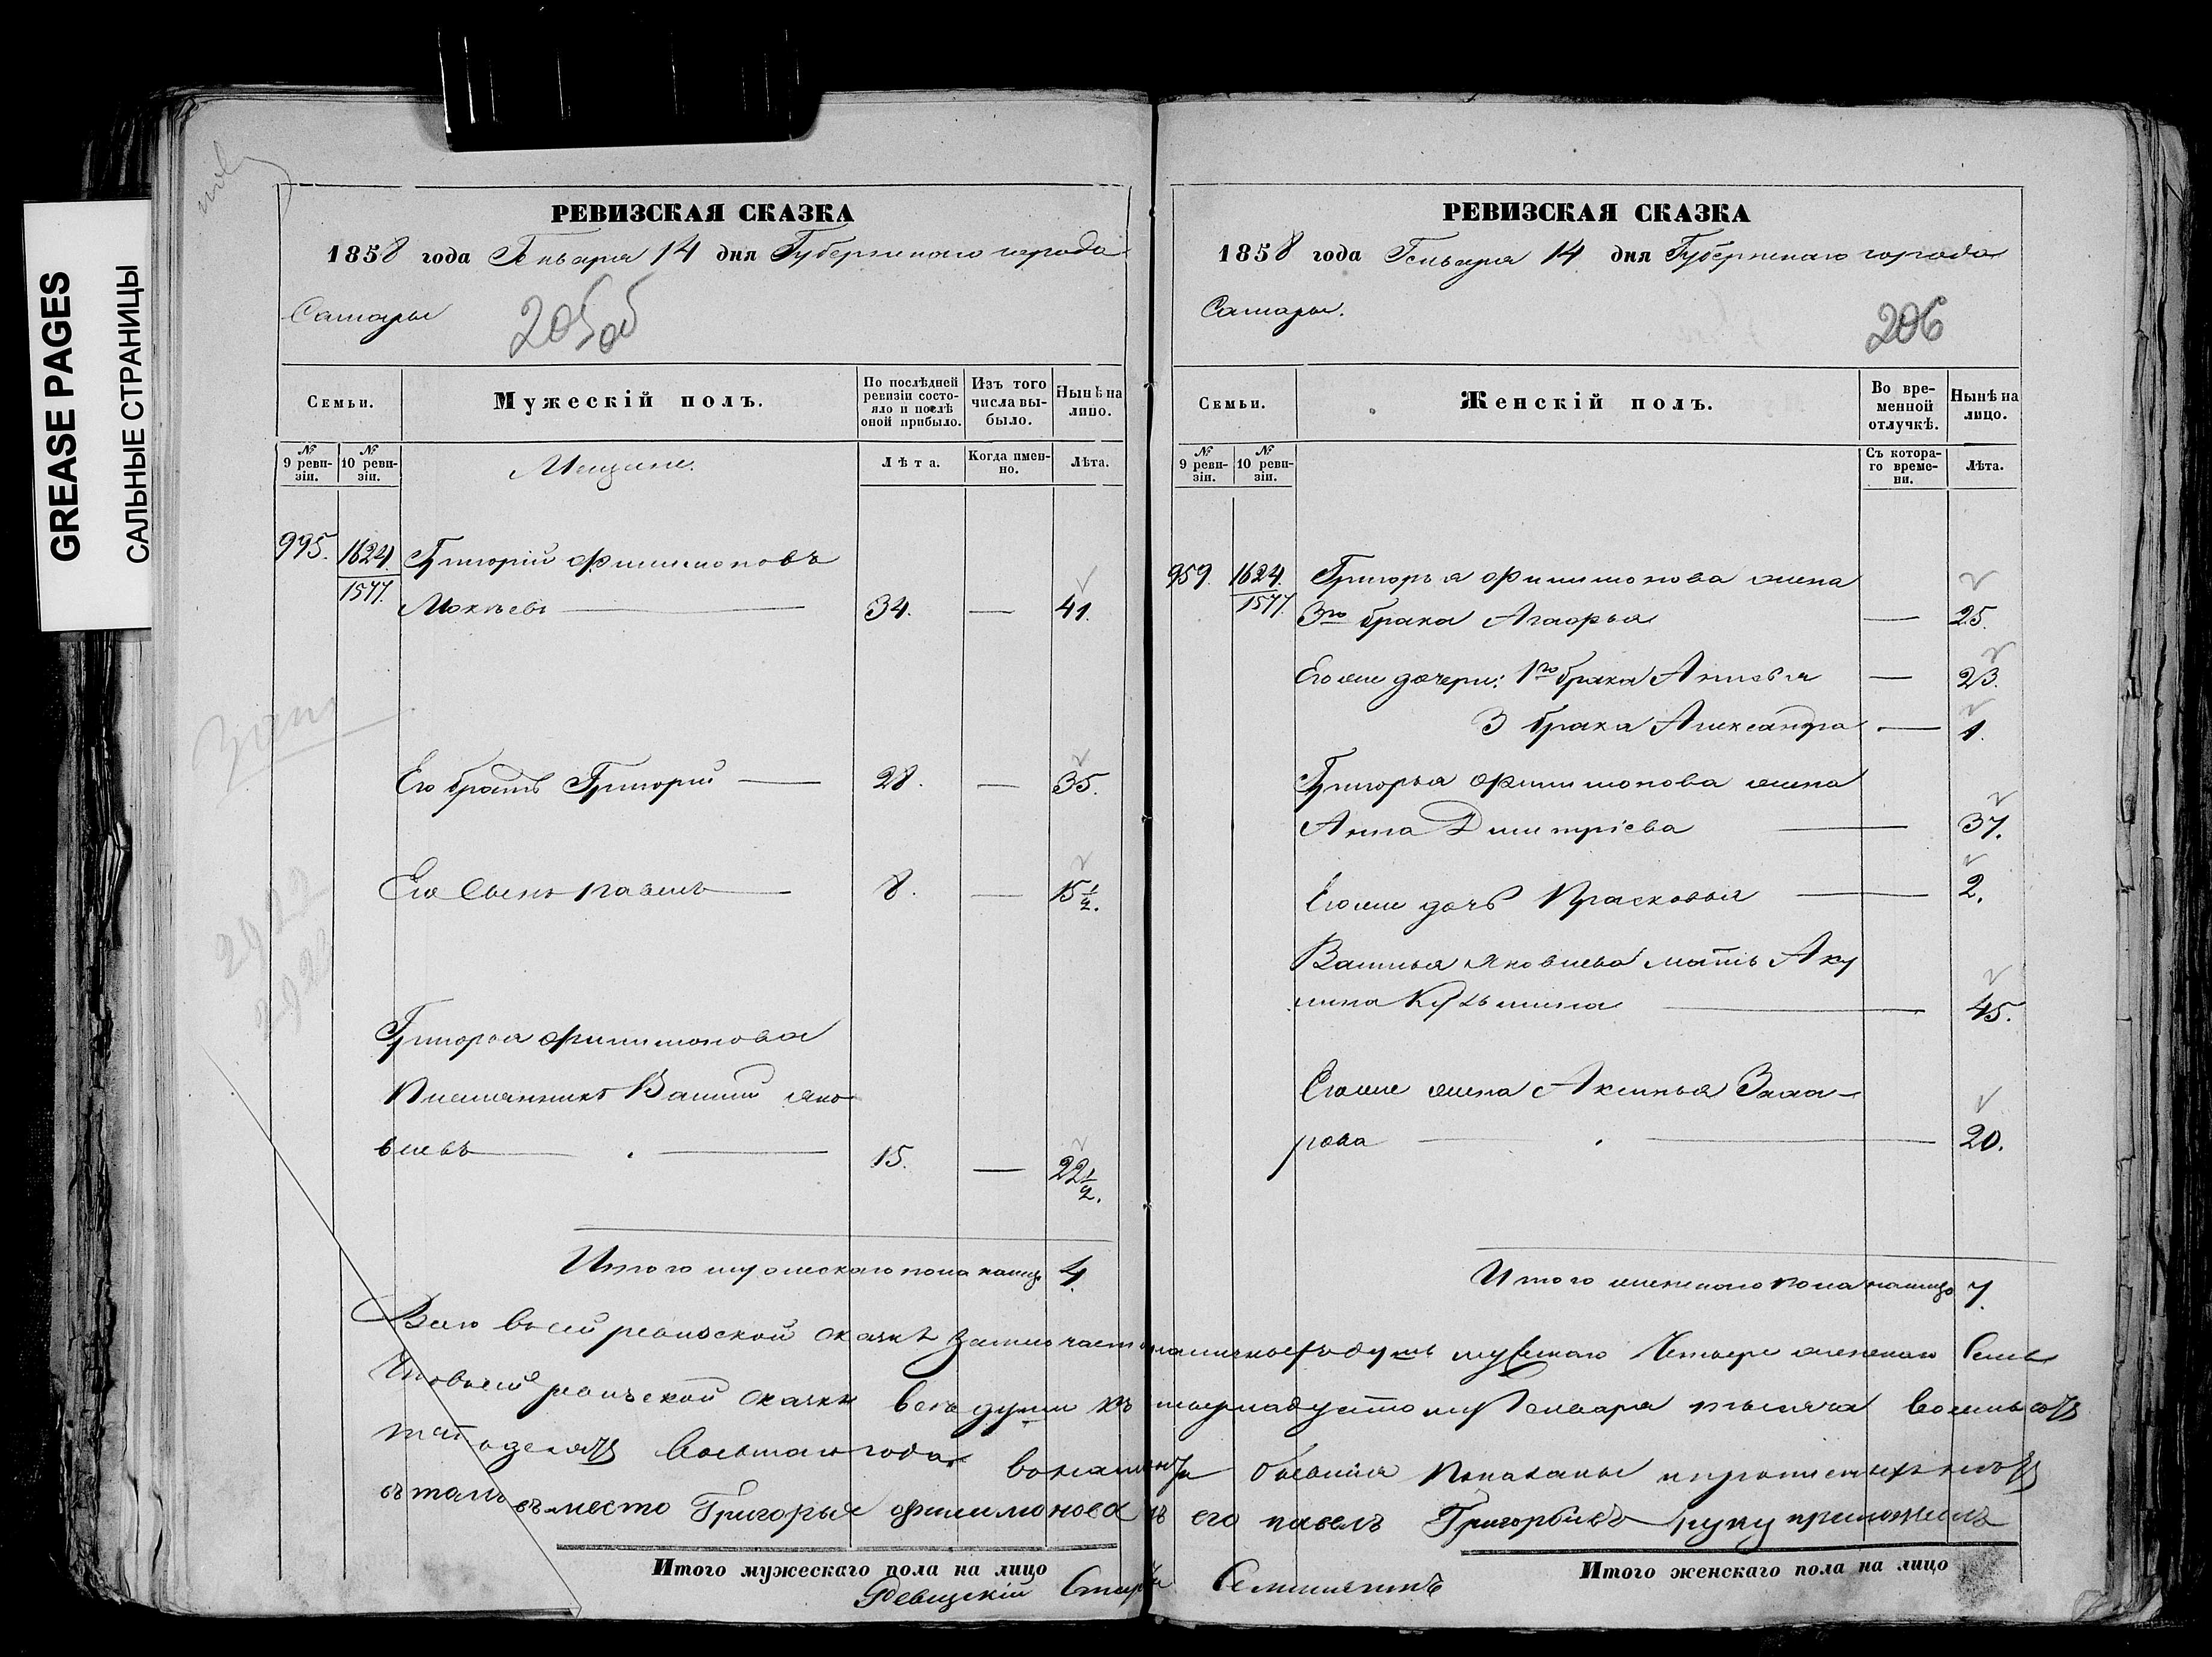 GREASE PAGES
САЛЬНЫЕ СТРАНИЦЫ
РЕВИЗСКАЯ СКАЗКА
1858 года Генваря 14 дня Губернскаго города
Самары
205об
Семьи.
Мужескій полъ.
По послѣдней ревизіи состояло и послѣ оной прибыло.
Изъ того числа выбыло.
Нынѣ на лицо.
№ 9 ревизіи.
№ 10 ревизіи.
Мещане.
Лѣта.
Когда именно.
Лѣта.
995. 1624. Григорій Филимоновъ
1577. Мокѣевъ — 34. — 41.
Его братъ Григорій — 28. — 35.
Его Сынъ Павелъ — 8. — 15½.
Григорья Филимонова
Племянникъ Василій Яко
влевъ — 15. — 22½.
Итого мужескаго пола налицо 4.
РЕВИЗСКАЯ СКАЗКА
1858 года Генваря 14 дня Губернскаго города
Самары.
206
Семьи.
Женскій полъ.
Во временной отлучкѣ.
Нынѣ на лицо.
№ 9 ревизіи.
№ 10 ревизіи.
Съ котораго времени.
Лѣта.
959. 1624. Григорья Филимонова жена
1577. 3го брака Агафья — 25.
Его же дочери: 1го брака — 23.
3 брака Александра — 1.
Григорья Филимонова жена
Анна Дмитріева — 37.
Его же дочь Прасковья — 2.
Василья Яковлева мать Аку
лина Кузьмина — 45.
Его же жена Аксинья Заха-
рова — 20.
Итого женскаго пола налицо 7.
Всего в сей ревизской сказкѣ заключается наличныхъ душъ мужскаго Четыре женскаго Семь
Что в сей ревизской сказки все души къ Генваря тысяча восемьсотъ
пятьдесятъ восьмаго года в наличности бывшія показаны и
въместо Григорья Филимонова его павелъ Григорьивъ руку приложилъ
Итого мужескаго пола на лицо
Итого женскаго пола на лицо
Ревизскій